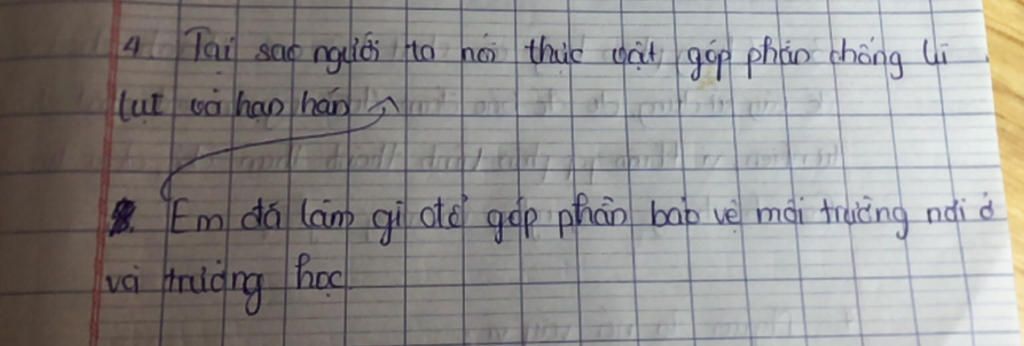 4. Tại sao người ta nói thực vật góp phần chống lũ
lụt và hạn hán
Em đã làm gì để góp phần bảo vệ môi trường nơi ở
và trường học